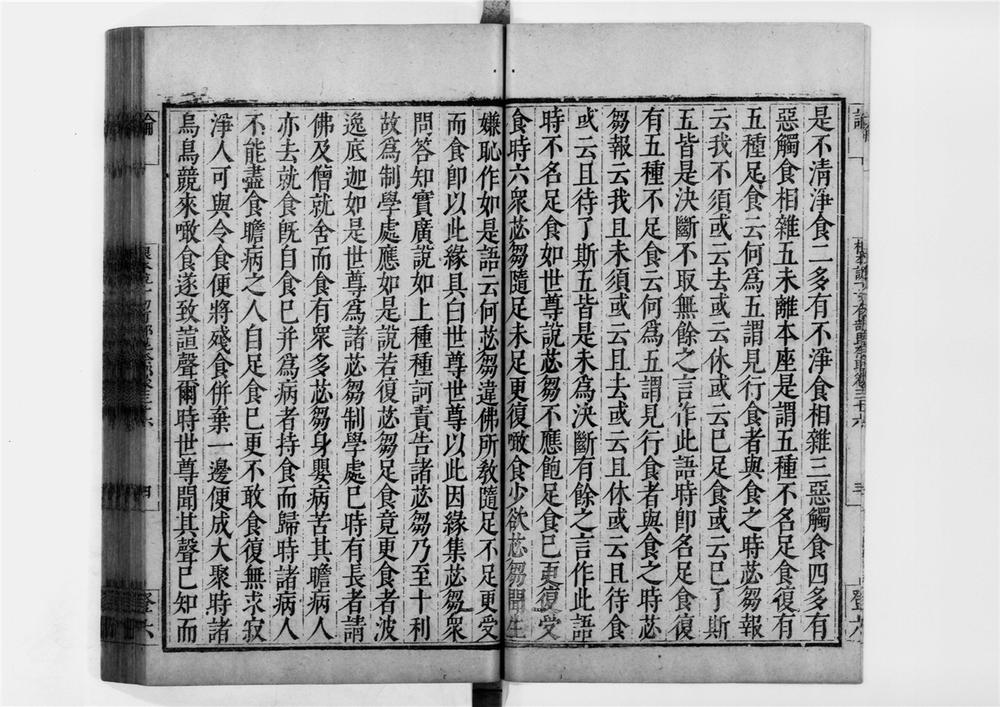 是不清淨食二多有不淨食相雜三惡觸食四多有
惡觸食相雜五未離本座是謂五種不名足食復有
五種足食云何為五謂見行食者與食之時苾芻報
云我不須或云去或云休或云已足食或云已了斯
五皆是決斷不取無餘之言作此語時即名足食復
有五種不足食云何為五謂見行食者與食之時苾
芻報云我且未須或云且去或云且休或云且待食
或云且待了斯五皆是未為決斷有餘之言作此語
時不名足食如世尊說苾芻不應飽足食已更復受
食時六眾苾芻隨足未足更復噉食少欲苾芻聞生
嫌恥作如是語云何苾芻違佛所教隨足不足更受
而食即以此緣具白世尊世尊以此因緣集苾芻眾
問答知實廣說如上種種訶責告諸苾芻乃至十利
故為制學處應如是說若復苾芻足食竟更食者波
逸底迦如是世尊為諸苾芻制學處已時有長者請
佛及僧就舍而食有眾多苾芻身嬰病苦其瞻病人
亦去就食既自食已并為病者持食而歸時諸病人
不能盡食瞻病之人自足食已更不敢食復無求寂
淨人可與令食便將殘食併棄一邊便成大聚時諸
烏鳥競來噉食遂致諠聲爾時世尊聞其聲已知而